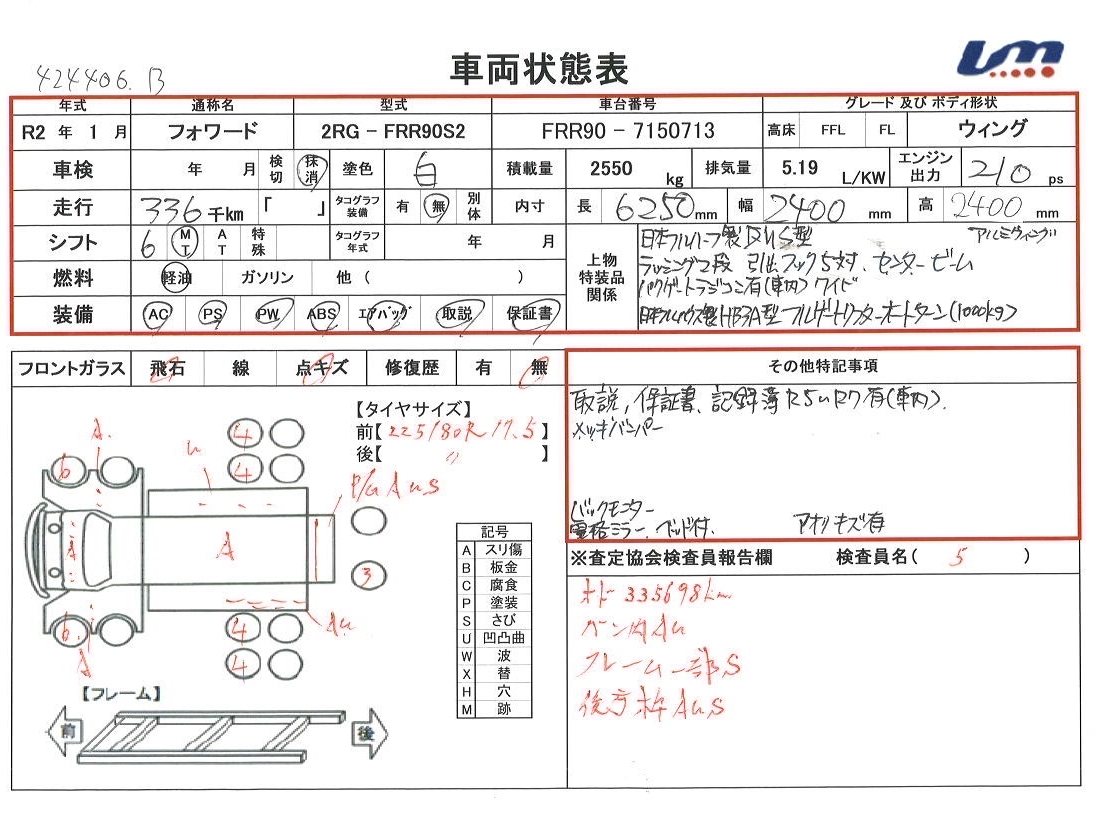 車両状態表
424406.B
UM
年式 通称名 型式 車台番号 グレード 及び ボディ形状
R2 年 1 月 フォワード 2RG - FRR90S2 FRR90 - 7150713 高床 FFL FL ウィング
車検 年 月 検切 抹消 塗色 白 積載量 2550 kg 排気量 5.19 L/KW エンジン出力 210 ps
走行 336 千km 「 」 タコグラフ装備 有 無 別体 内寸 長 6250 mm 幅 2400 mm 高 2400 mm
シフト 6 MT AT 特殊 タコグラフ年式 年 月
燃料 軽油 ガソリン 他 ( )
装備 AC PS PW ABS エアバッグ 取説 保証書
上物特装品関係
日本フルハーフ製 型 アルミウィング
ラッシング2段 引出フック5対、センタービーム
バックゲートラジコン有(車内) ワイド
型 (1000kg)
フロントガラス 飛石 線 点キズ 修復歴 有 無
その他特記事項
取説, 保証書、記録簿 有(車内)、
メッキバンパー
バックモニター
電格ミラー、ベッド付、 アオリキズ有
【タイヤサイズ】
前【 225/80R 17.5 】
後【 〃 】
A U 4 4
6 P/G A U S
A A 3
6 4 AU
A 4
記号
A スリ傷
B 板金
C 腐食
P 塗装
S さび
U 凹凸曲
W 波
X 替
H 穴
M 跡
【フレーム】
前 後
※査定協会検査員報告欄 検査員名( 5 )
オド 335698km
バン内AU
フレーム一部S
後方枠AUS